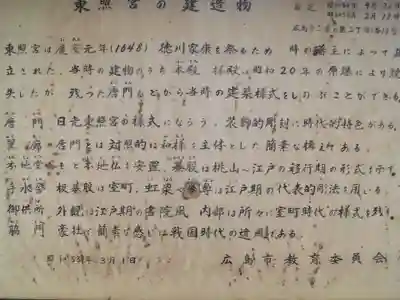 東照宮の建造物
東照宮は慶安元年(1648) 徳川家康を祭るため 時の藩主によって建
立された。当時の建物のうち本殿 拝殿は昭和20年の原爆により焼
失したが 残った唐門などから当時の建築様式をしのぶことができる。
唐門 日光東照宮の様式にならう、装飾的彫刻に時代的特色がある。
翼廊 の唐門とは対照的に和様を主体とした簡素な構えである。
本地堂 もと本地仏を安置。蟇股は桃山〜江戸の移行期の形式を示す
手水舎 板蟇股は室町、虹梁 は江戸期の代表的彫法を用いる。
御供所 外観は江戸期の書院風 内部は所々に室町時代の様式を残す
脇門 豪壮で簡素な感じは戦国時代の遺風である。
昭和59年3月1日 広島市教育委員会